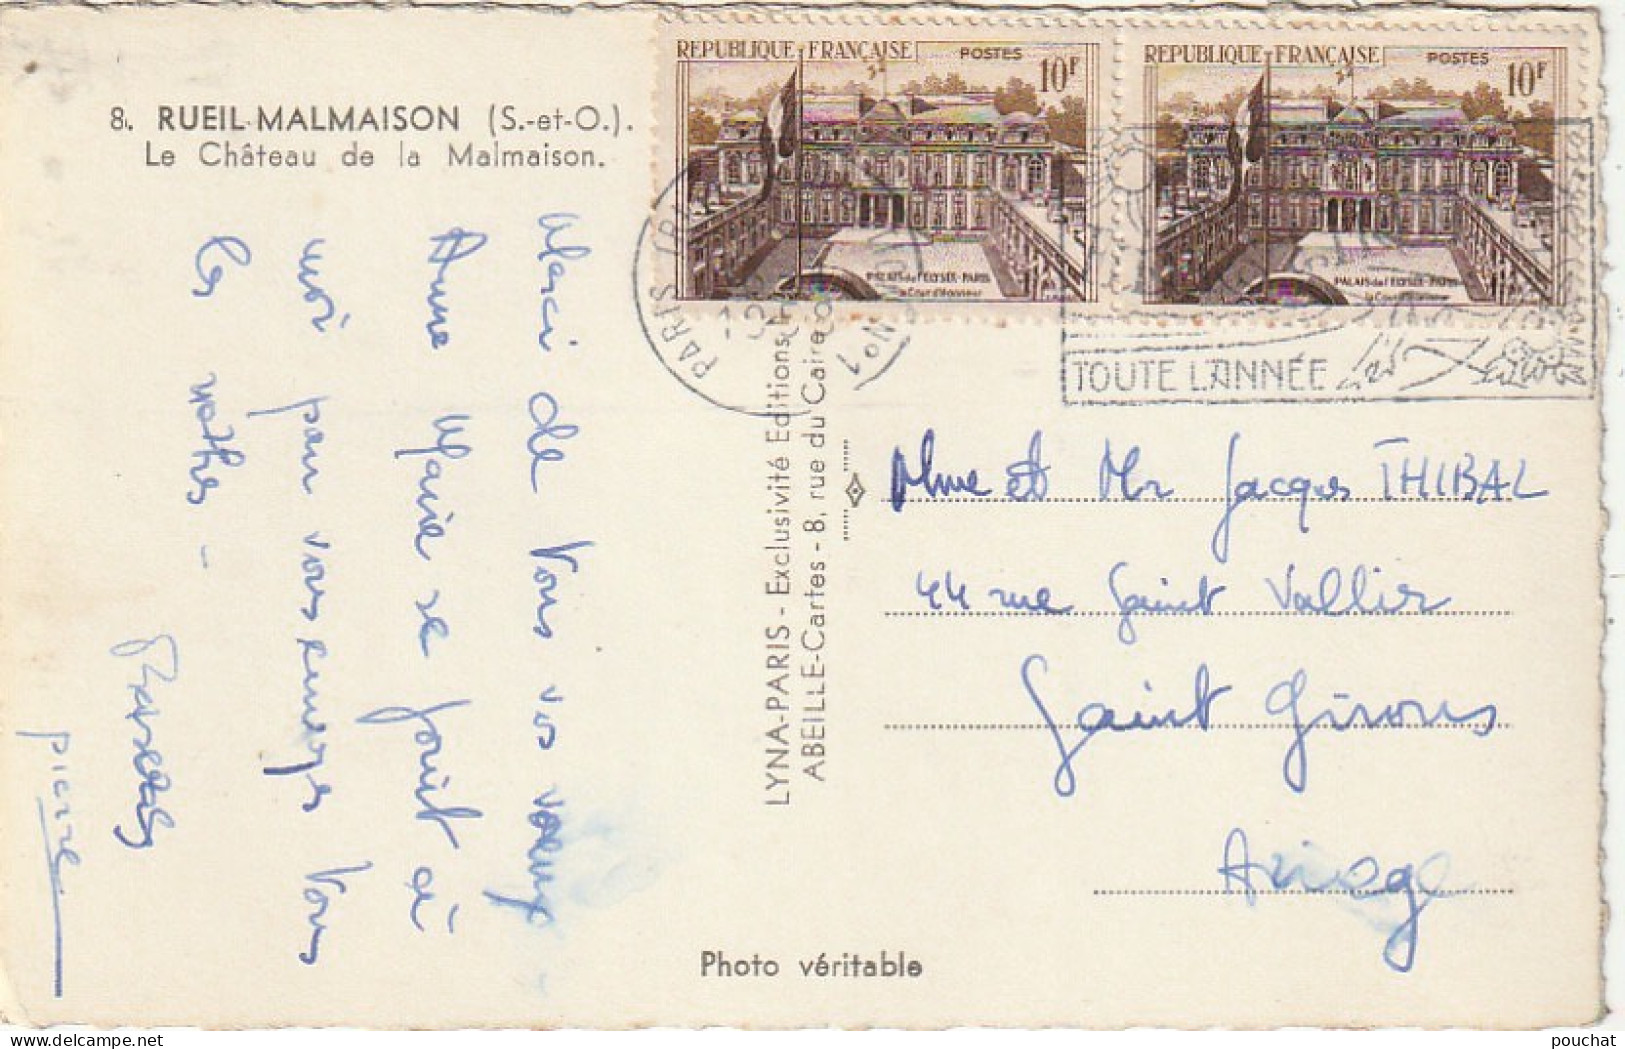 8. RUEIL-MALMAISON (S.-et-O.).
Le Château de la Malmaison.
Merci de tous vos vœux -
Anne Marie se joint à
moi pour vous envoyer tous
les notres -
Pierre
LYNA-PARIS - Exclusivité Editions
ABEILLE-Cartes - 8, rue du Caire
REPUBLIQUE FRANÇAISE POSTES 10F
PALAIS de l'ELYSEE-PARIS
la Cour d'Honneur
REPUBLIQUE FRANÇAISE POSTES 10F
PALAIS de l'ELYSEE-PARIS
la Cour d'Honneur
PARIS
TOUTE L'ANNÉE
Mme et Mr Jacques THIBAL
44 rue Saint Vallier
Saint Girons
Ariege
Photo véritable
pouchat